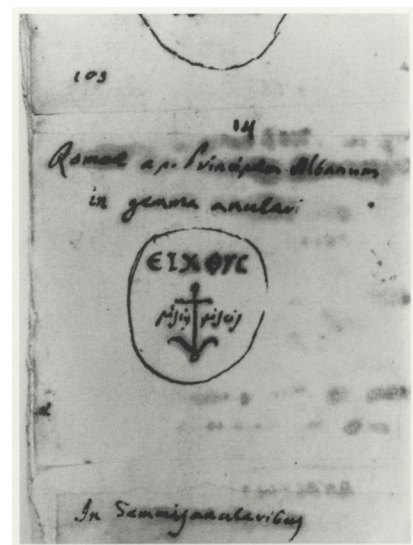 103
14
Romae ap. Principem Albanum
in gemma anulari
ЄIXΘYC
piscis piscis
In Gemmis anularibus